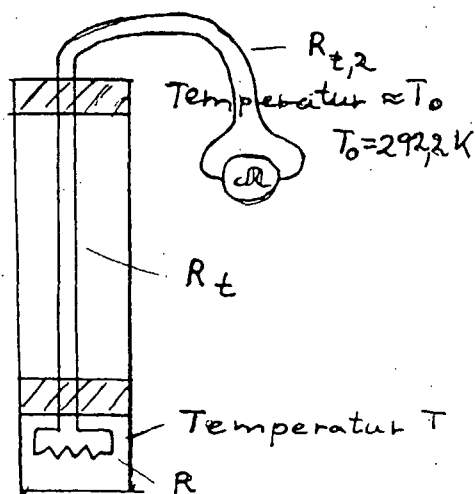 R_{t,2}
Temperatur ≈ T_0
T_0 = 292,2 K
Ω
R_t
Temperatur T
R